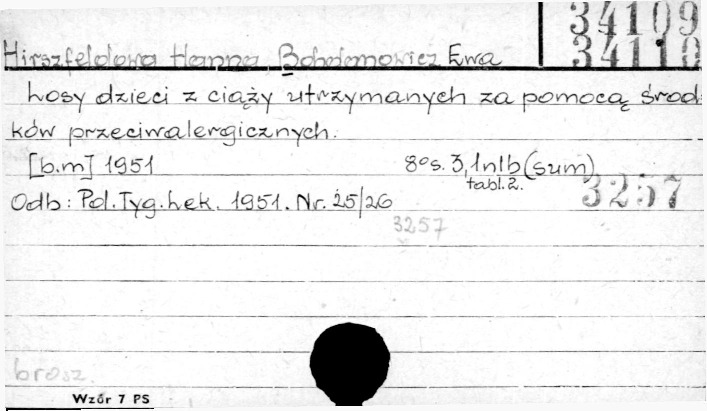 34109
34110
Hirszfeldowa Hanna, Bohdanowicz Ewa
Losy dzieci z ciąży utrzymanych za pomocą środ
ków przeciwalergicznych.
[b.m] 1951 8° s. 3, 1 nlb (sum)
tabl. 2.
3257
Odb: Pol. Tyg. Lek. 1951. Nr. 25/26
3257
brosz.
Wzór 7 PS